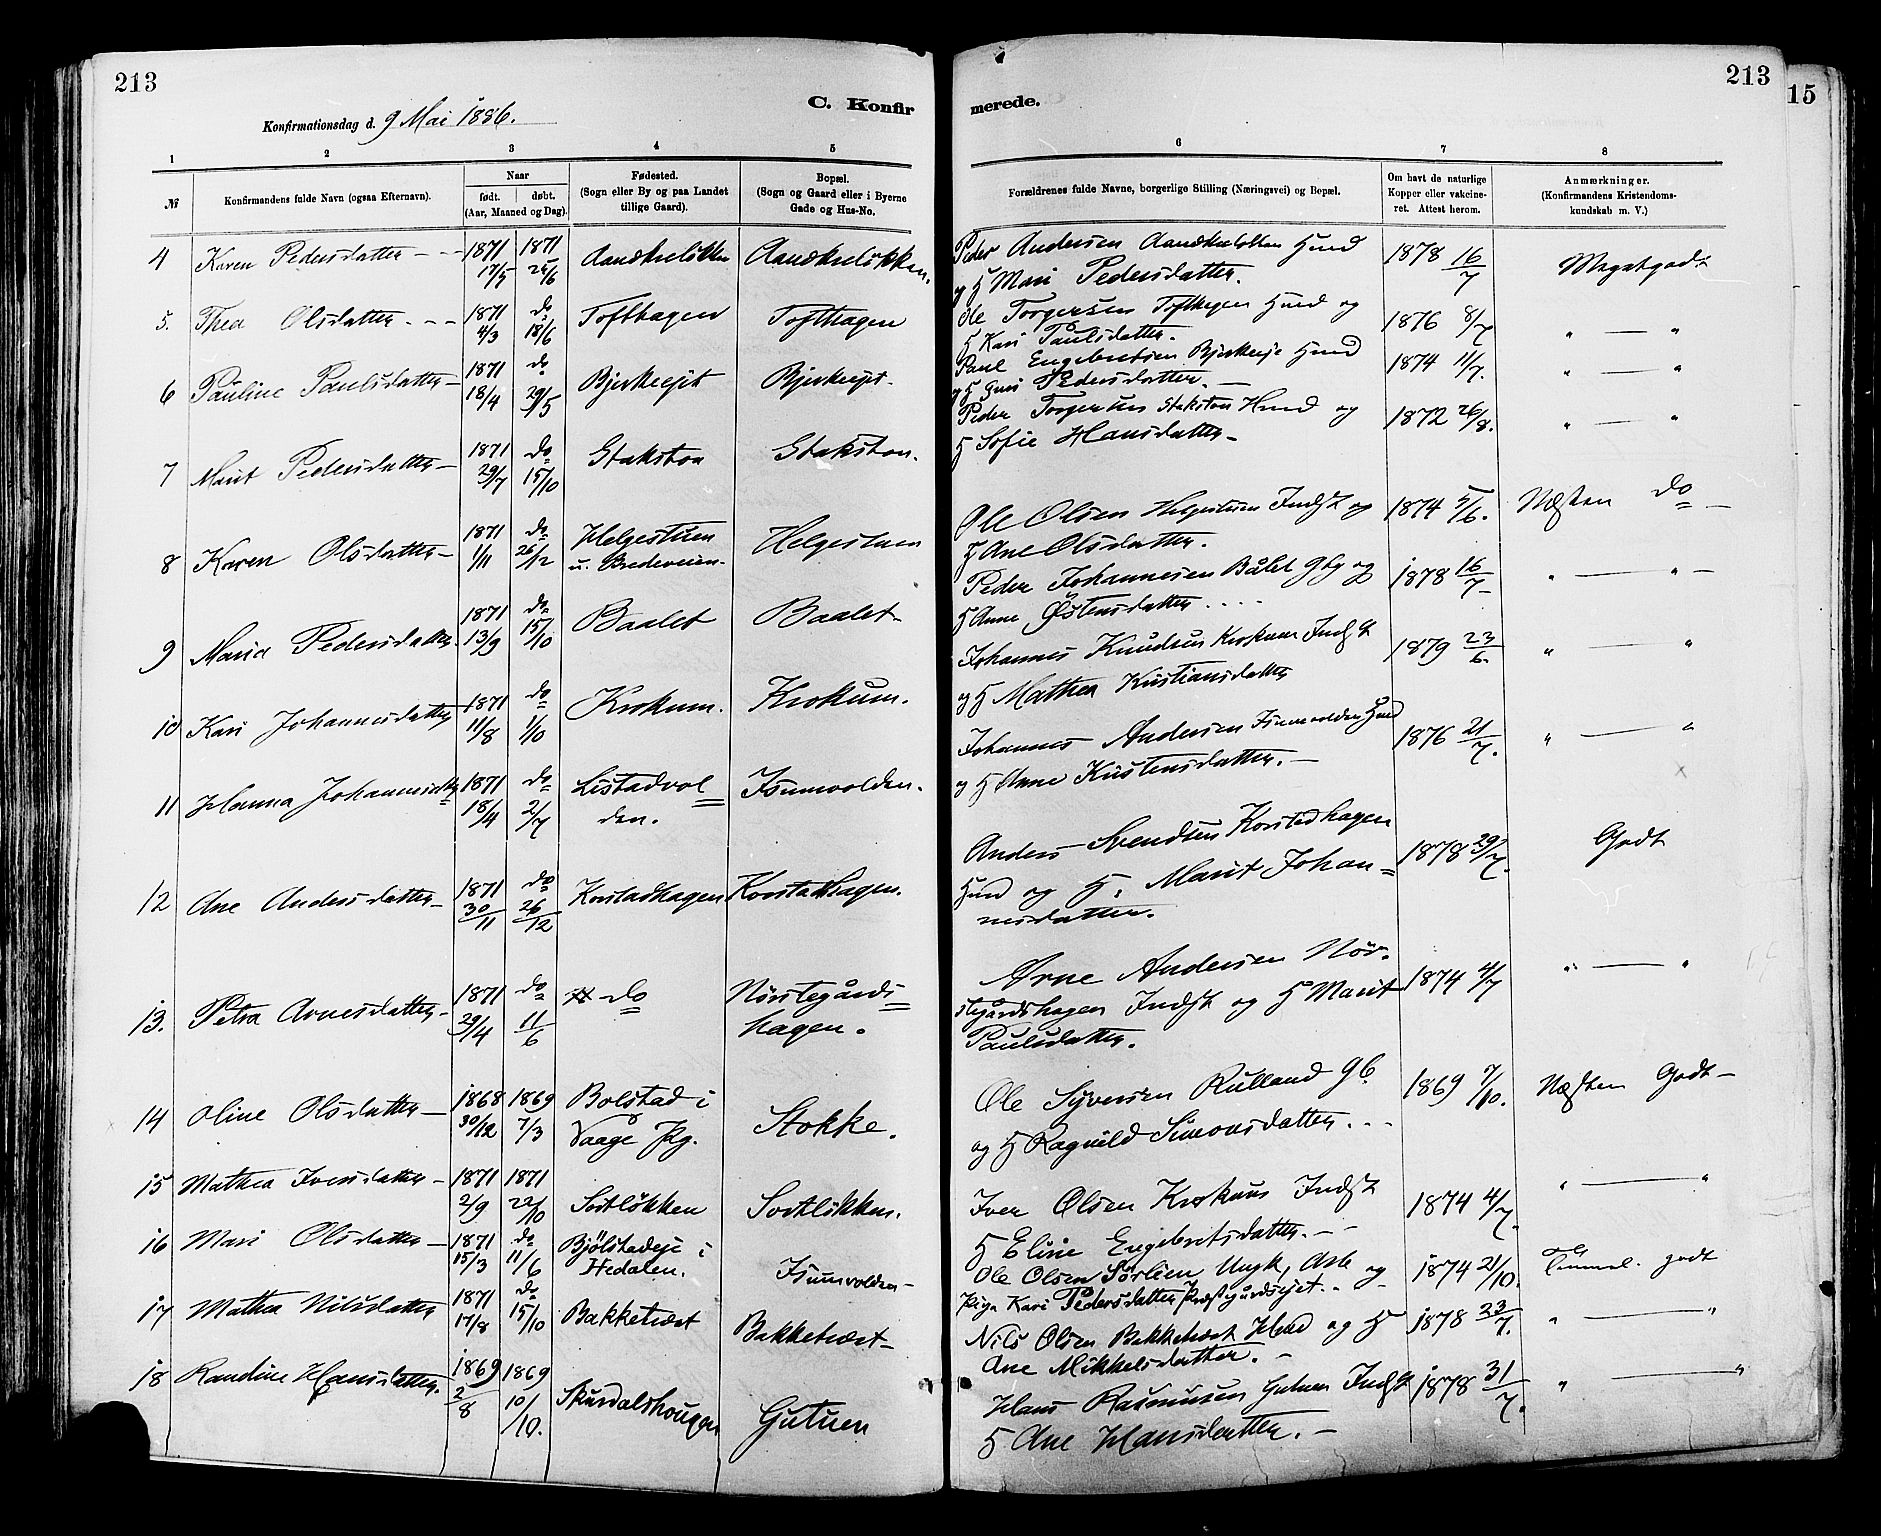 213
213
15
C. Konfir
merede.
Konfirmationsdag d. 9 Mai 1886.
1 2 3 4 5 6 7 8
№ Konfirmandens fulde Navn (ogsaa Efternavn).
Naar
født. døbt.
(Aar, Maaned og Dag).
Fødested.
(Sogn eller By og paa Landet
tillige Gaard).
Bopæl.
(Sogn og Gaard eller i Byerne
Gade og Hus-No.
Forældrenes fulde Navne, borgerlige Stilling (Næringsvei) og Bopæl.
Om havt de naturlige
Kopper eller vakcine-
ret. Attest herom.
Anmærkninger.
(Konfirmandens Kristendoms-
kundskab m. V.)
4 Karen Pedersdatter - - 1871 17/5 1871 25/6 Aandkleløkken Aandkleløkken.
Peder Andersen Aandkleløkken Husmd
og H Mari Pedersdatter. 1878 16/7 Megetgodt
5. Thea Olsdatter - - - 1871 4/3 do 18/6 Tofthagen Tofthagen
Ole Torgersen Tofthagen Husmd og
H Kari Paulsdatter. 1876 8/7 " — "
6 Pauline Paulsdatter - 1871 18/4 do 29/5 Bjerkeejet Bjerkeejet.
Paul Engebretsen Bjerkeeje Husmd
og H Guri Pedersdatter. - 1874 11/7. " — "
7 Marit Pedersdatter - 1871 29/7 do 15/10 Stakston Stakston.
Peder Torgersen Stakston Husmd og
H Sofie Hansdatter - 1872 26/8. " — "
8 Karen Olsdatter - 1871 1/11 do 26/12 Helgestuen
u. Bredeveien. Helgestuen
Ole Olsen Helgestuen Indst og
H Ane Olsdatter. 1874 5/6. Næsten do -
9 Maria Pedersdatter. 1871 13/9 do 15/10 Baalet Baalet -
Peder Johannesen Bålet Gbg og
H Anne Østensdatter . . . . 1878 16/7 " — " -
10 Kari Johannesdatter 1871 11/8 do 1/10 Krokum. Krokum.
Johannes Knudsen Krokum Indst
og H Mathea Kristiansdatter 1879 23/6. " — "
11 Hanna Johannesdtr 1871 18/4 do 2/7 Listadvol=
den. Isumvolden.
Johannes Andersen Isumvolden Husmd
og H Anne Kristensdatter. - 1876 21/7. " — "
12 Ane Andersdatter - 1871 30/11 do 26/12 Korstadhagen Korstadhagen.
Anders Svendsen Korstadhagen
Husmd og H. Marit Johan=
nesdatter. 1878 29/7. Godt
13. Petra Arnesdatter - 1871 29/4 do 11/6 do Nørstegårds=
hagen.
Arne Andersen Nør.
stegårdshagen Indst og H Marit
Paulsdatter. 1874 4/7 " — "
14 Oline Olsdatter - 1868 30/12 1869 7/3 Bolstad i
Vaage Pg. Stokke.
Ole Syversen Rulland Gb.
og H Ragnild Simonsdatter. . . 1869 7/10. Næsten Godt -
15 Mathea Iversdatter - 1871 2/9 1871 22/10 Sortløkken Sortløkken.
Iver Olsen Krokum Indst
H Eline Engebretsdatter. - - 1874 4/7. " — "
16 Mari Olsdatter - 1871 15/3 do 11/6 Bjølstadeje i
Hedalen. Isumvolden -
Ole Olsen Sørlien Ungk, Asle og
Pige Kari Pedersdatter Præstgårdsejet. - 1874 21/10. Temmel. godt
17 Mathea Nilsdatter 1871 17/8 do 15/10 Bakketræet Bakketræet -
Nils Olsen Bakketræet Husmd og H
Ane Mikkelsdatter. - 1878 23/7. " — "
18 Randine Hansdatter. 1869 2/8 1869 10/10. Skurdalshougen Gutuen
Hans Rasmussen Gutuen Indst
H Ane Hansdatter. - 1878 31/7. " — "